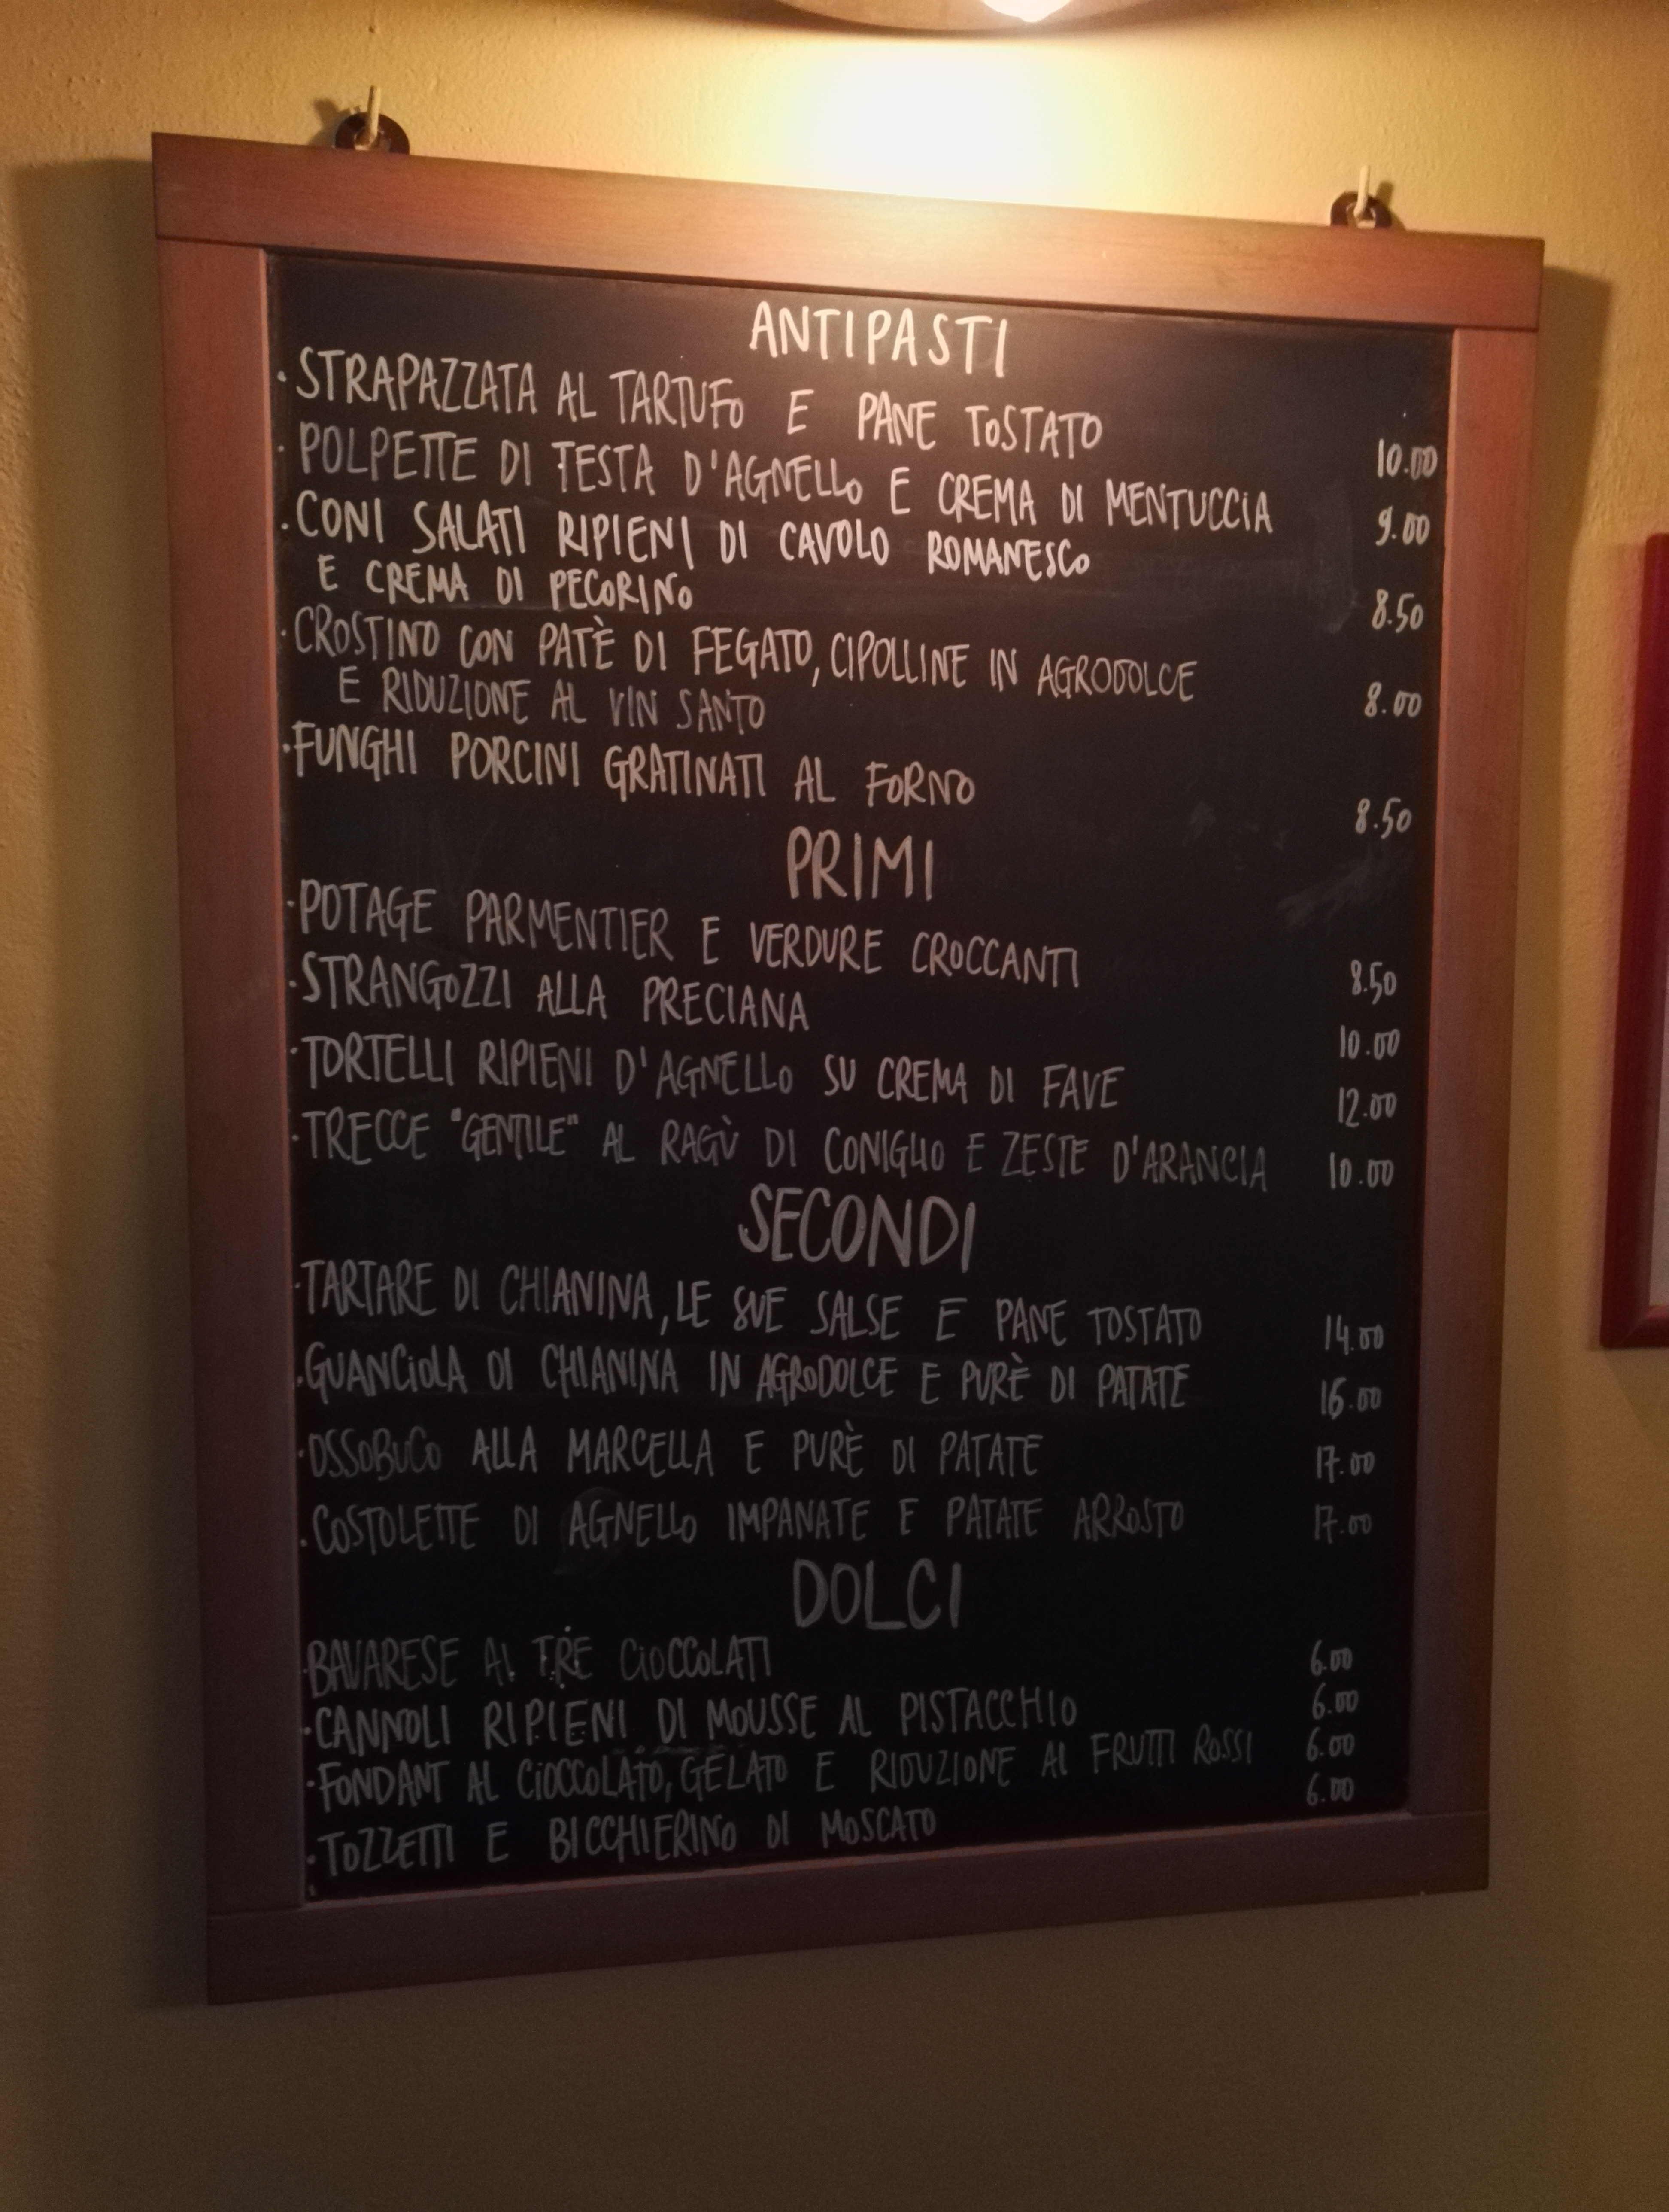 ANTIPASTI
· STRAPAZZATA AL TARTUFO E PANE TOSTATO 10.00
· POLPETTE DI TESTA D'AGNELLO E CREMA DI MENTUCCIA 9.00
· CONI SALATI RIPIENI DI CAVOLO ROMANESCO
E CREMA DI PECORINO 8.50
· CROSTINO CON PATÈ DI FEGATO, CIPOLLINE IN AGRODOLCE
E RIDUZIONE AL VIN SANTO 8.00
· FUNGHI PORCINI GRATINATI AL FORNO 8.50
PRIMI
· POTAGE PARMENTIER E VERDURE CROCCANTI 8.50
· STRANGOZZI ALLA PRECIANA 10.00
· TORTELLI RIPIENI D'AGNELLO SU CREMA DI FAVE 12.00
· TRECCE "GENTILE" AL RAGÙ DI CONIGLIO E ZESTE D'ARANCIA 10.00
SECONDI
· TARTARE DI CHIANINA, LE SUE SALSE E PANE TOSTATO 14.00
· GUANCIOLA DI CHIANINA IN AGRODOLCE E PURÈ DI PATATE 16.00
· OSSOBUCO ALLA MARCELLA E PURÈ DI PATATE 17.00
· COSTOLETTE DI AGNELLO IMPANATE E PATATE ARROSTO 17.00
DOLCI
· BAVARESE AI TRE CIOCCOLATI 6.00
· CANNOLI RIPIENI DI MOUSSE AL PISTACCHIO 6.00
· FONDANT AL CIOCCOLATO, GELATO E RIDUZIONE AI FRUTTI ROSSI 6.00
· TOZZETTI E BICCHIERINO DI MOSCATO 6.00